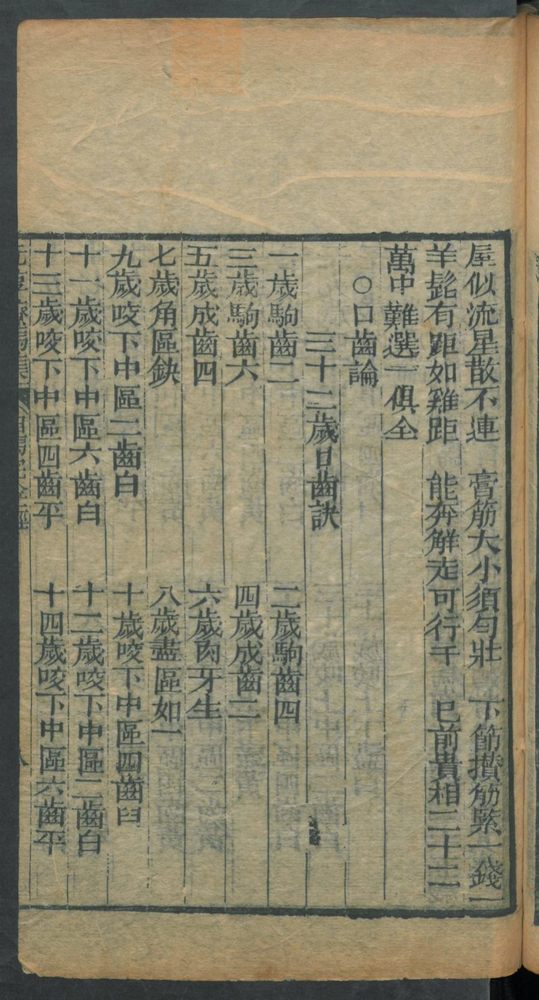 屋似流星散不連　膏筋大小須勻壯　下節攢筋緊一錢
羊髭有距如雞距　能奔解走可行千　已前貴相三十二
萬中難選一俱全
○口齒論
三十二歲口齒訣
一歲駒齒二　二歲駒齒四
三歲駒齒六　四歲成齒二
五歲成齒四　六歲肉牙生
七歲角區缺　八歲盡區如一
九歲咬下中區二齒白　十歲咬下中區四齒白
十一歲咬下中區六齒白　十二歲咬下中區二齒白
十三歲咬下中區四齒平　十四歲咬下中區六齒平